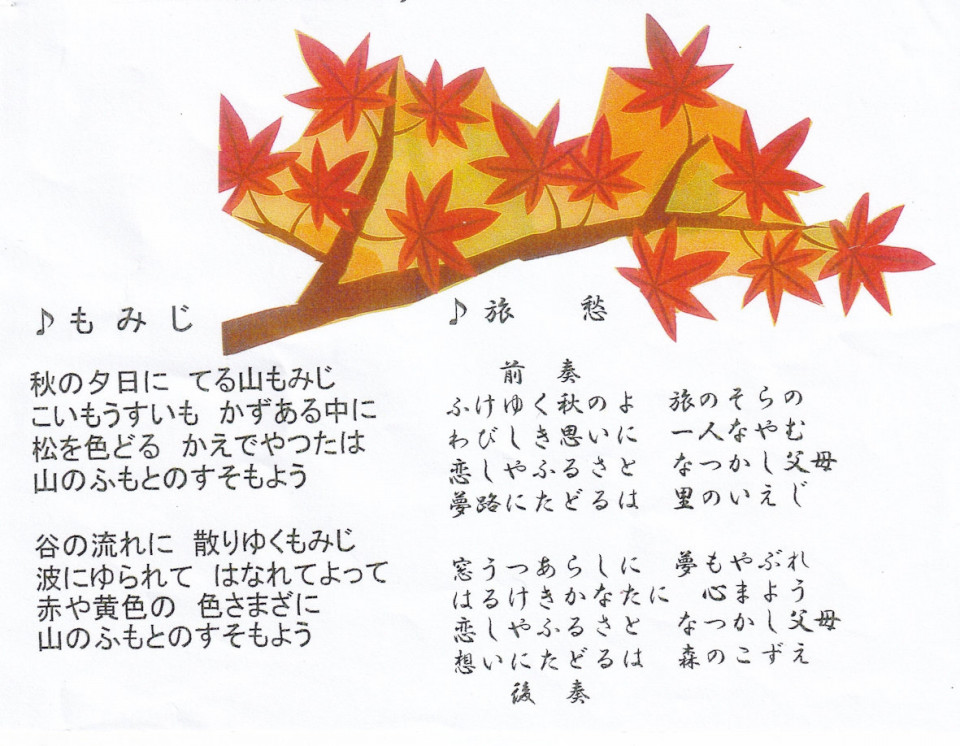 ♪もみじ
秋の夕日に てる山もみじ
こいもうすいも かずある中に
松を色どる かえでやつたは
山のふもとのすそもよう
谷の流れに 散りゆくもみじ
波にゆられて はなれてよって
赤や黄色の 色さまざに
山のふもとのすそもよう
♪旅 愁
前 奏
ふけゆく秋のよ 旅のそらの
わびしき思いに 一人なやむ
恋しやふるさと なつかし父母
夢路にたどるは 里のいえじ
窓うつあらしに 夢もやぶれ
はるけきかなたに 心まよう
恋しやふるさと なつかし父母
想いにたどるは 森のこずえ
後 奏